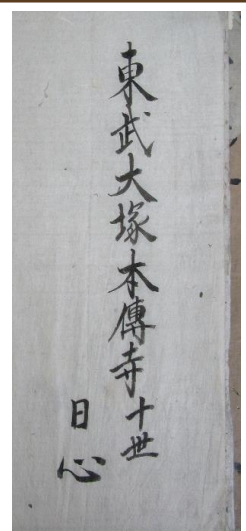 東武大塚本傳寺十世
日心